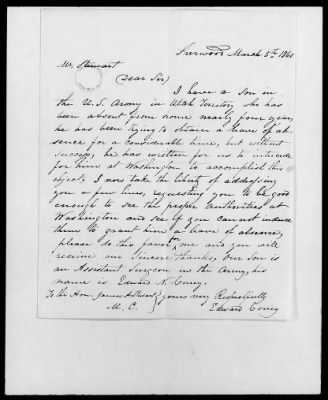 Sherwood March 5th, 1860
Mr. Stewart
(Dear Sir)
I have a Son in
the U.S. Army in Utah Territory, he has
been absent from home nearly four years,
he has been trying to obtain a leave of ab
sence for a considerable time, but without
success, he has written for us to intercede
for him at Washington to accomplish this
object, I now take the liberty of addressing
you a few lines, requesting you to be good
enough to see the proper authorities at
Washington and see if you can not induce
them to grant him a leave of absence,
please do this favor for me and you will
receive our Sincere thanks, Our Son is
an Assistant Surgeon in the Army, his
name is Edward N. Covey.
To the Hon. James A. Stewart } yours very Respectfully
M. C. } Edward Covey